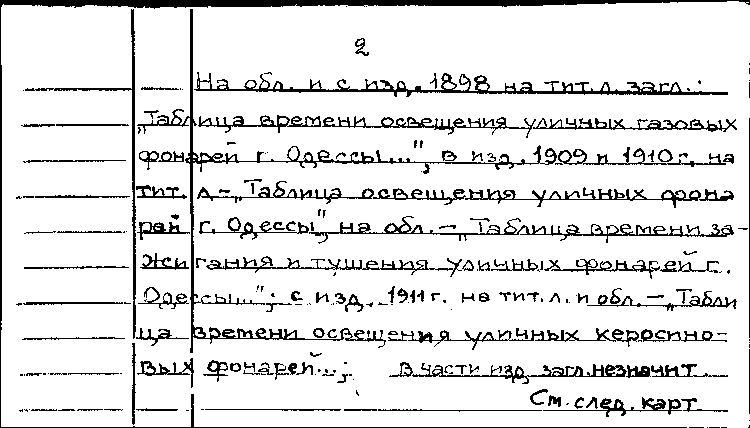 2
На обл. и с изд. 1898 на тит. л. загл.:
„Таблица времени освещения уличных газовых
фонарей г. Одессы...", в изд. 1909 и 1910 г. на
тит. л – „Таблица освещения уличных фона
рей г. Одессы", на обл. – „Таблица времени за-
жигания и тушения уличных фонарей г.
Одессы..."; с изд. 1911 г. на тит. л. и обл. – „Табли
ца времени освещения уличных керосино-
вых фонарей...; в части изд. загл. незначит.
См. след. карт.